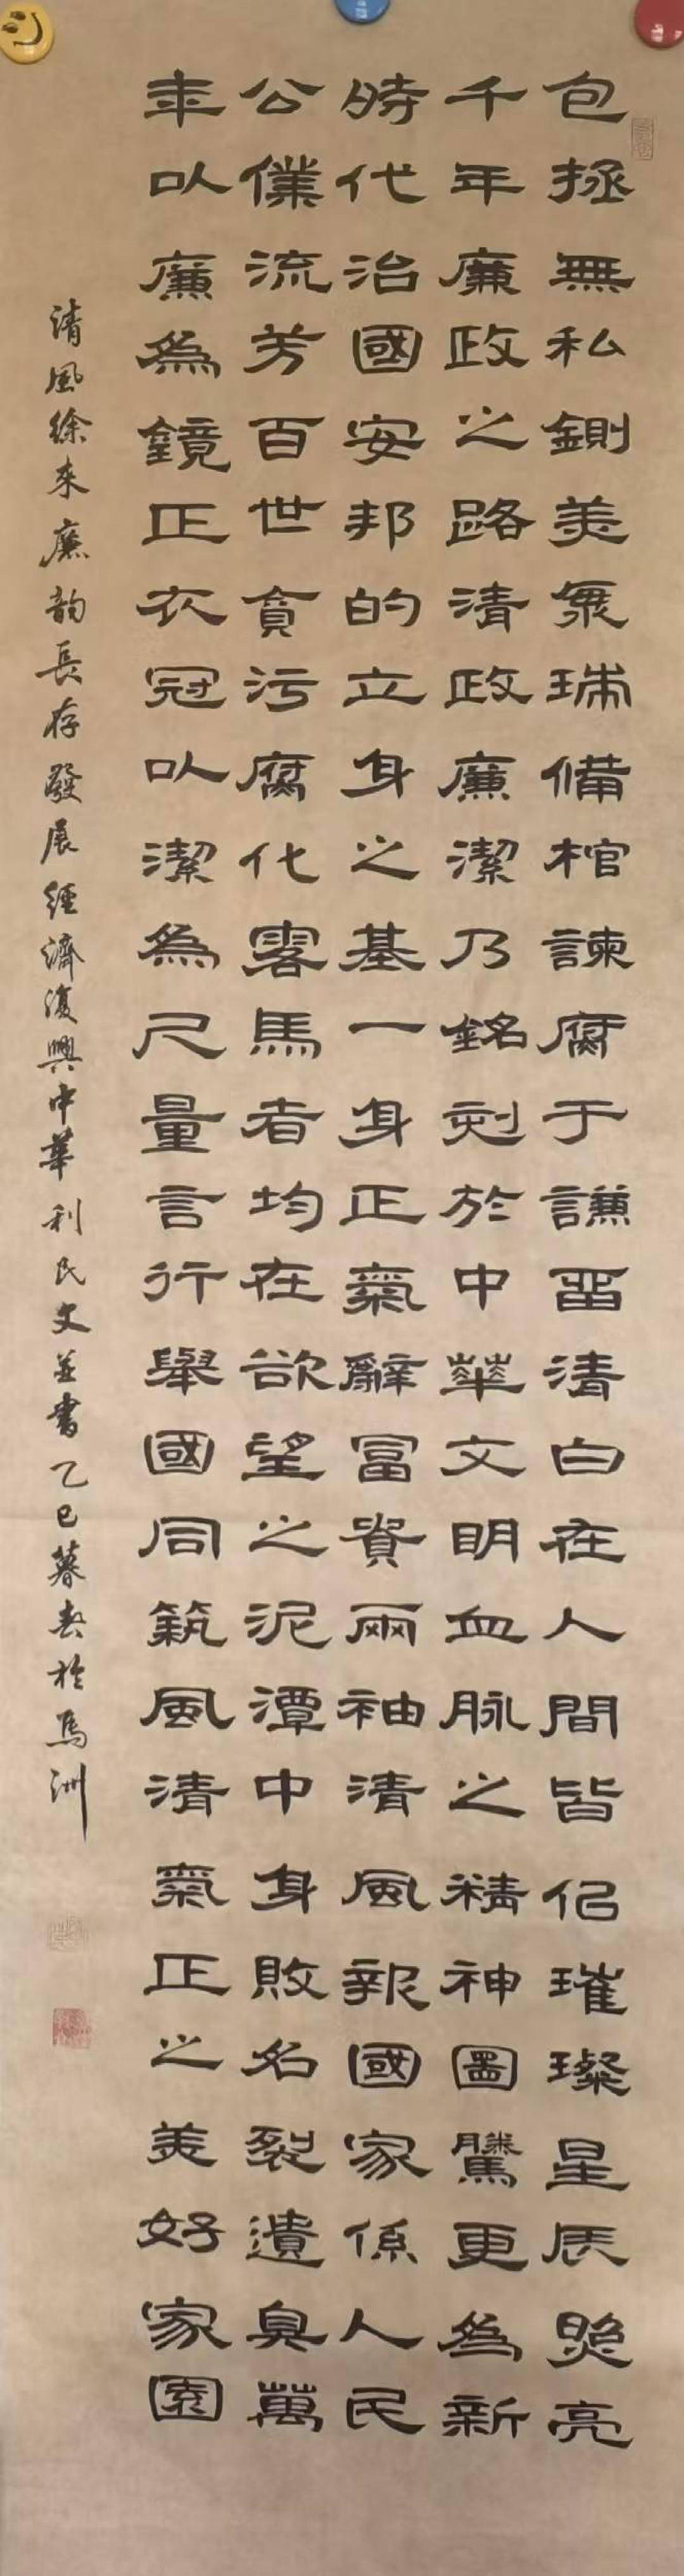 包拯無私鍘美氣瑞備棺諫腐于謙留清白在人間皆似璀璨星辰照亮
千年廉政之路清政廉潔乃銘刻於中華文明血脉之精神圖騰更為新
時代治國安邦的立身之基一身正氣辭富貴兩袖清風報國家係人民
公僕流芳百世貪污腐化害馬者均在欲望之泥潭中身敗名裂遺臭萬
年以廉為鏡正衣冠以潔為尺量言行舉國同筑風清氣正之美好家園
清風徐来廉韵長存發展經濟復興中華利民文並書乙巳暮春於馬洲